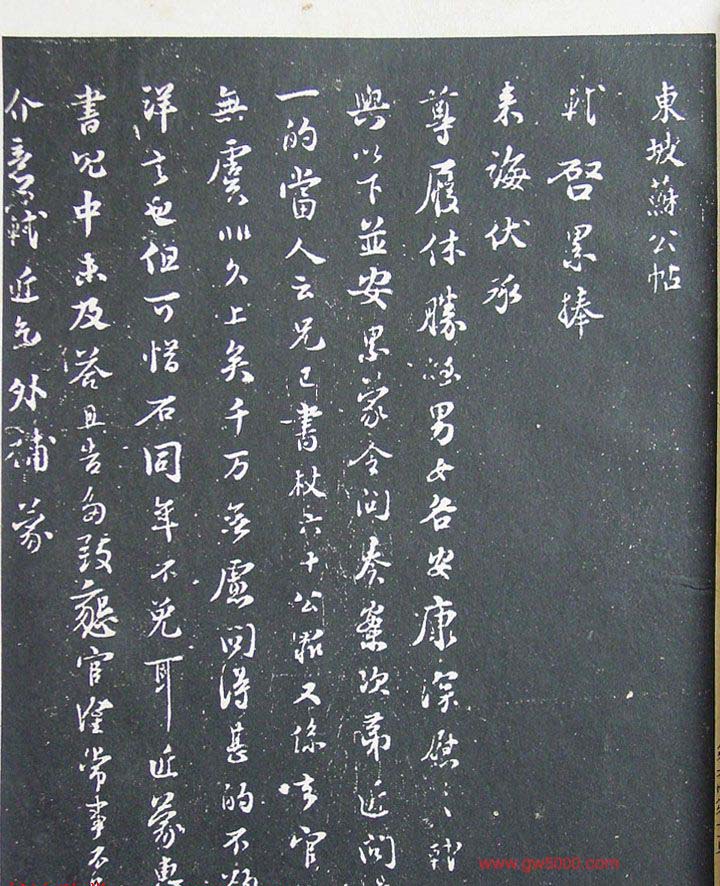 東坡蘇公帖
軾啓累捧
来誨伏承
尊履休勝德男女各安康深慰〻軾
與以下並安累蒙令问奏案次第近问
一的當人云兄已書杖六十公罪又係去官
無虞非久上矣千万無慮问得甚的不欲
詳言也但可惜石同年不免耳近蒙惠
書兄中未及答且告多致懇官滿常事不
介意軾近乞外補蒙
www.gw5000.com